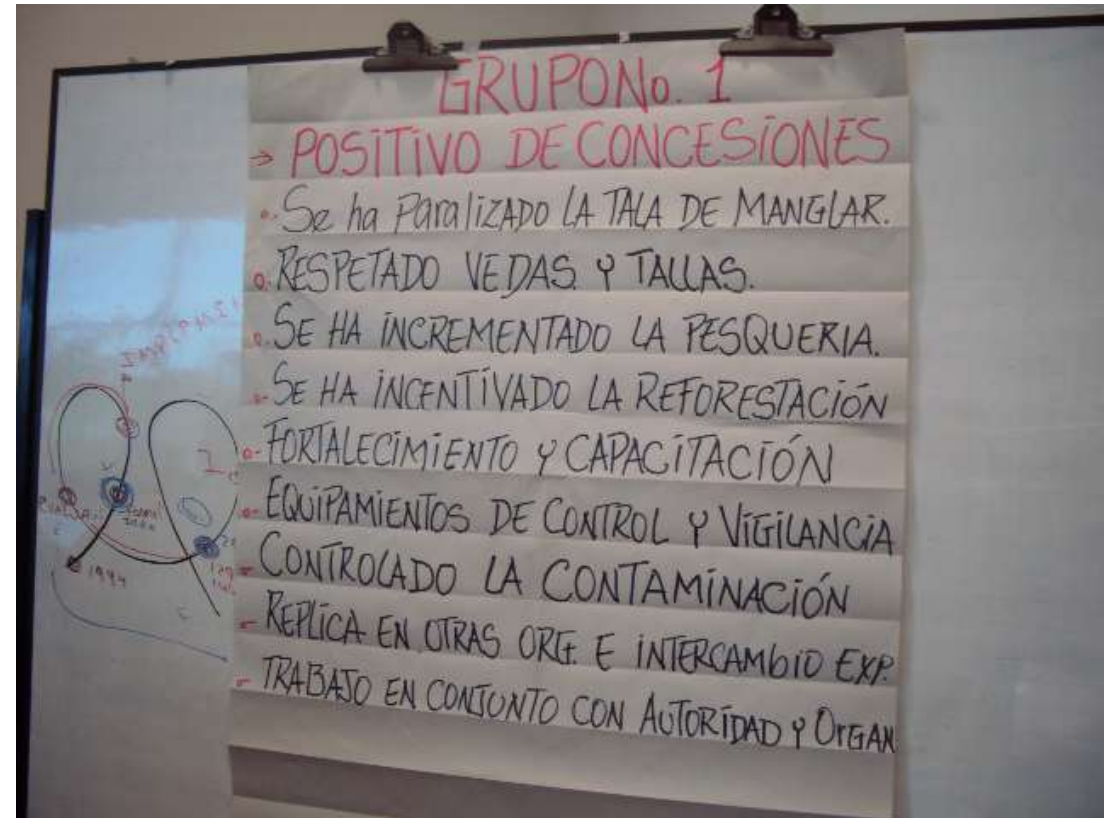 GRUPO No. 1
→ POSITIVO DE CONCESIONES
o.- Se ha Paralizado LA TALA DE MANGLAR.
o.- RESPETADO VEDAS Y TALLAS.
o.- SE HA INCREMENTADO LA PESQUERIA.
o.- SE HA INCENTIVADO LA REFORESTACIÓN
o.- FORTALECIMIENTO Y CAPACITACIÓN
o.- EQUIPAMIENTOS DE CONTROL Y VIGILANCIA
= CONTROLADO LA CONTAMINACIÓN
- REPLICA EN OTRAS ORG. E INTERCAMBIO EXP.
- TRABAJO EN CONJUNTO CON AUTORIDAD Y OrGAN
1994